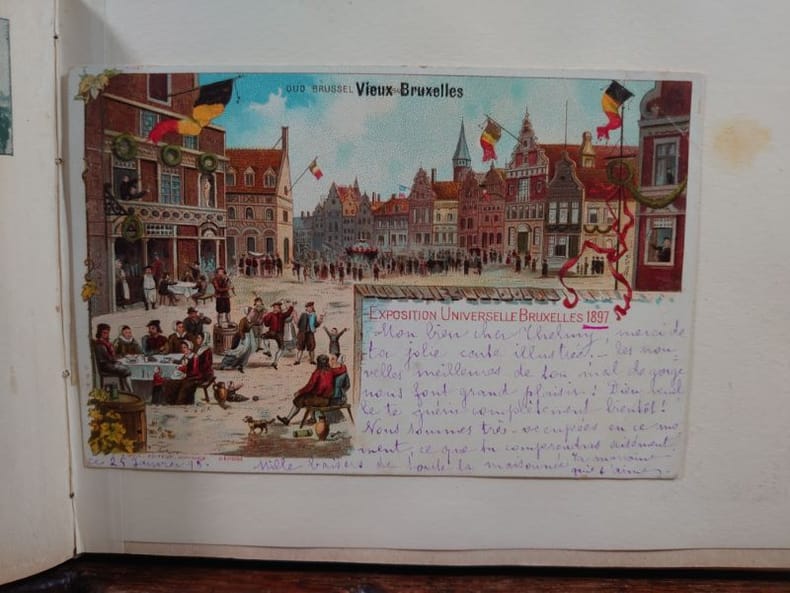 OUD BRUSSEL Vieux-Bruxelles
EXPOSITION UNIVERSELLE BRUXELLES 1897
Mon bien cher Thelmy, merci de
ta jolie carte illustrée. — les nou-
velles meilleures de ton mal de gorge
nous font grand plaisir! Dieu veuil
le te guérir complètement bientôt!
Nous sommes très-occupées en ce mo
ment, ce que tu comprendras aisément.
ce 25 Janvier 98. Mille baisers de toute la maisonnée
Ta marraine
qui t'aime.